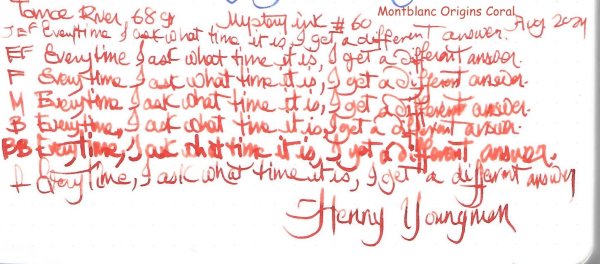 Tomoe River, 68g Mystery ink #60 Montblanc Origins Coral Aug 2024
JEF Everytime I ask what time it is, I get a different answer.
EF Everytime I ask what time it is, I get a different answer.
F Everytime, I ask what time it is, I get a different answer.
M Everytime, I ask what time it is, I get a different answer.
B Everytime, I ask what time it is, I get a different answer.
BB Everytime, I ask what time it is, I get a different answer.
Everytime, I ask what time it is, I get a different answer
Henny Youngman